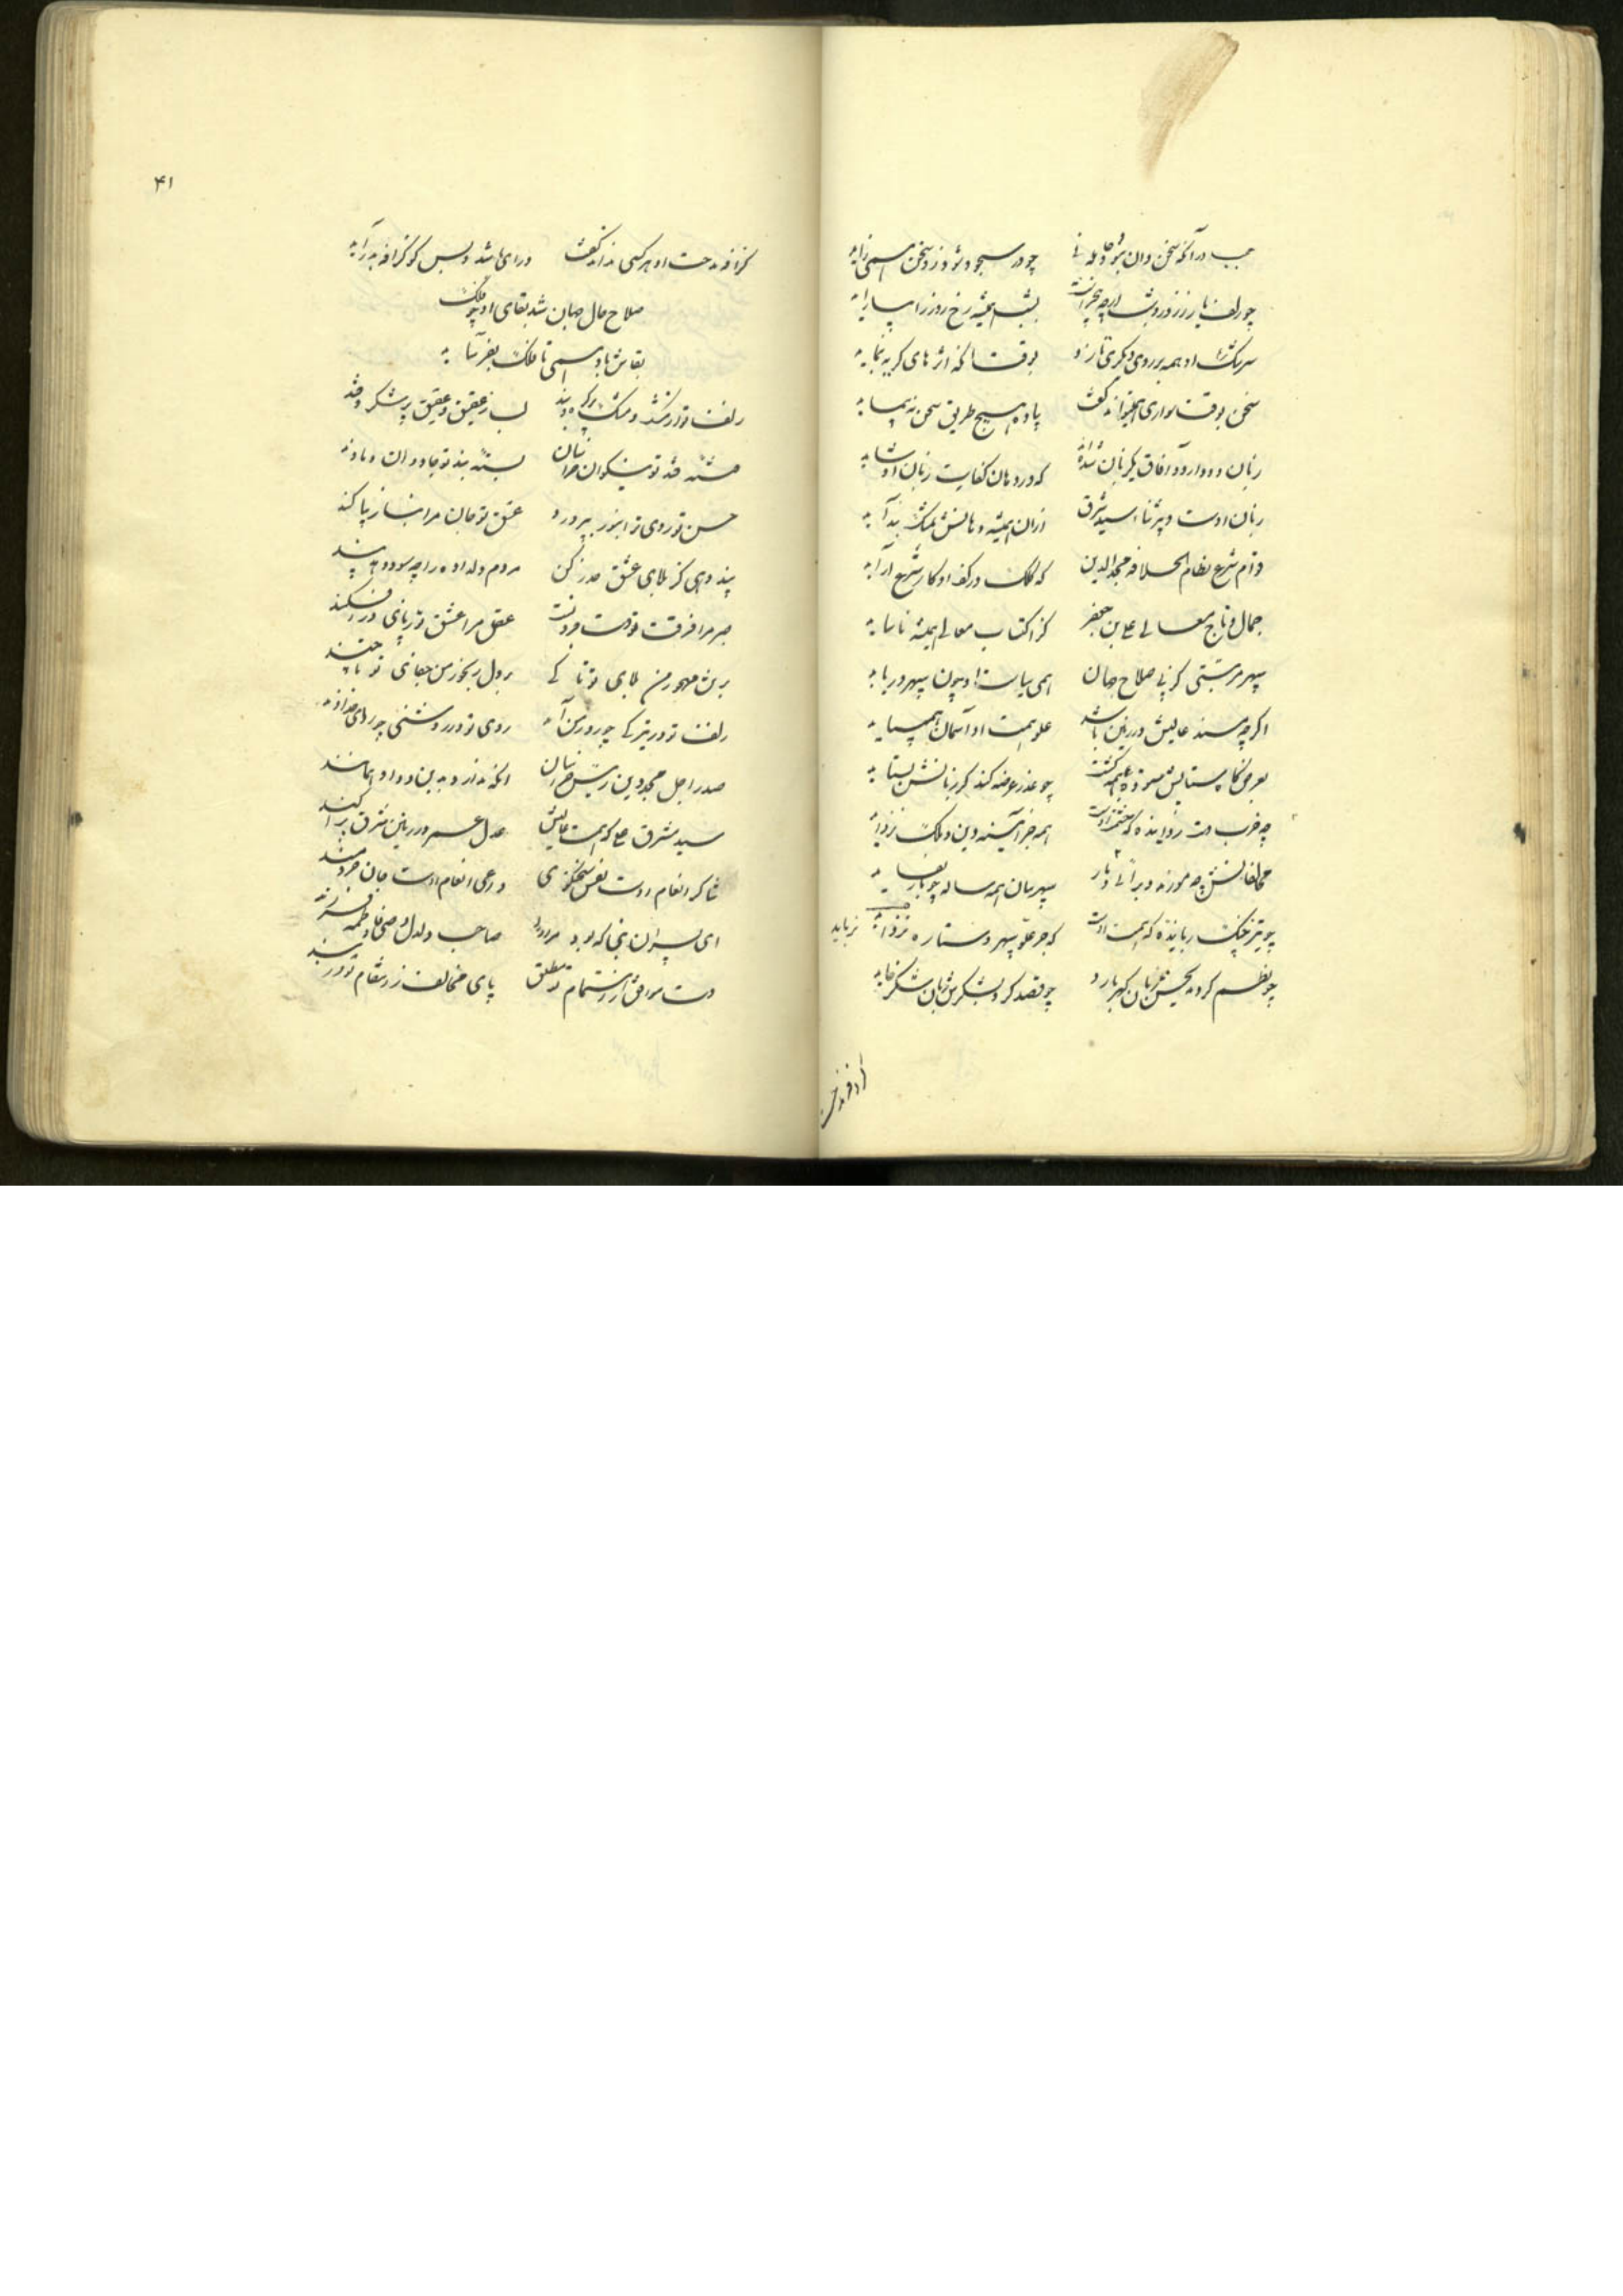 عجب در آنکه سخن دان بود و جاهل نی چو در سجود شود زو سخن همی زاید
چو زلف یار زره زو شب ار چه بشب همیشه رخ روز را بیاراید
سرشک او همه بر روی دیگری تازد بوقت آنکه اثرهای گریه بنماید
سخن بوقت سواری همیتواند گفت پیاده هیچ طریق سخن نپیماید
زبان دو دارد و آفاق یکزبان شده‌اند که در دهان کفایت زبان او شاید
زبان اوست و پر ثناء سید شرق ازان همیشه دهانش بمشک بنداید
قوام شرع نظام الخلافه مجدالدین که کلک در کف او کار شرع آراید
جمال و تاج معالی علی بن جعفر کز اکتساب معالی همیشه ناساید
سپهر مرتبتی کز پی صلاح جهان همی سیاست او چون سپهر در باید
اگر چه مسند عالیش در زمین باشد علو همت او آسمان بپیماید
بعرض‌گاه ستایش ستوده همه گشت چو عذر عرضه کند گر زبانش بستاید
چه خوب دست زداینده که همت اوست همه جز آینه دین و ملک نزداید
مخالفانش چه مورند و برآنی و مار سپهرسان همه ساله چو مار بفساید
چو تیز چنگ رباینده که همت اوست که جز علو سپهر و ستاره نرباید نرباید
چو نظم کرد بتحسینش زبان گهر بارد چو قصد کرد بشکرش زبان شکر خاید
گزافه مدحت او هر کسی نداند گفت ورای باشد و بس کو گزافه بدراید
صلاح حال جهان شد بقای او چو فلک
بقاش باد همی تا فلک بفرساید
زلف تو از مشک و مشک بر گل پیوند لب ز عقیق و عقیق پر شکر و قند
خسته قد تو نیکوان خراسان بسته بند تو جادوان دماوند
حسن تو روی ترا بنور بپرورد عشق تو جان مرا بناز پیا کند
پند دهی کز بلای عشق حذر کن مردم دلداده را چه سود دهد پند
صبر مرا فرقت تو دست فروبست عقل مرا عشق تو ز پای در افکند
بر تن مهجور من بلای تو تا کی بر دل رنجور من جفای تو تا چند
زلف تو در تیرگی چو روز من آمد روی تو در روشنی چو رای خداوند
صدر اجل مجد دین رئیس خراسان آنکه ندارد بدین و داد همانند
سید مشرق علی که همت عالیش عدل عمر در زمین مشرق بپراکند
شاکر انعام اوست نفس سخنگوی داعی انعام اوست جان خردمند
ای پسر آن نبی که بود مر او را صاحب دلدل وصی و فاطمه فرزند
دست موافق ز اهتمام تو مطلق پای مخالف ز انتقام تو در بند
گزافه مدحت
۴۱